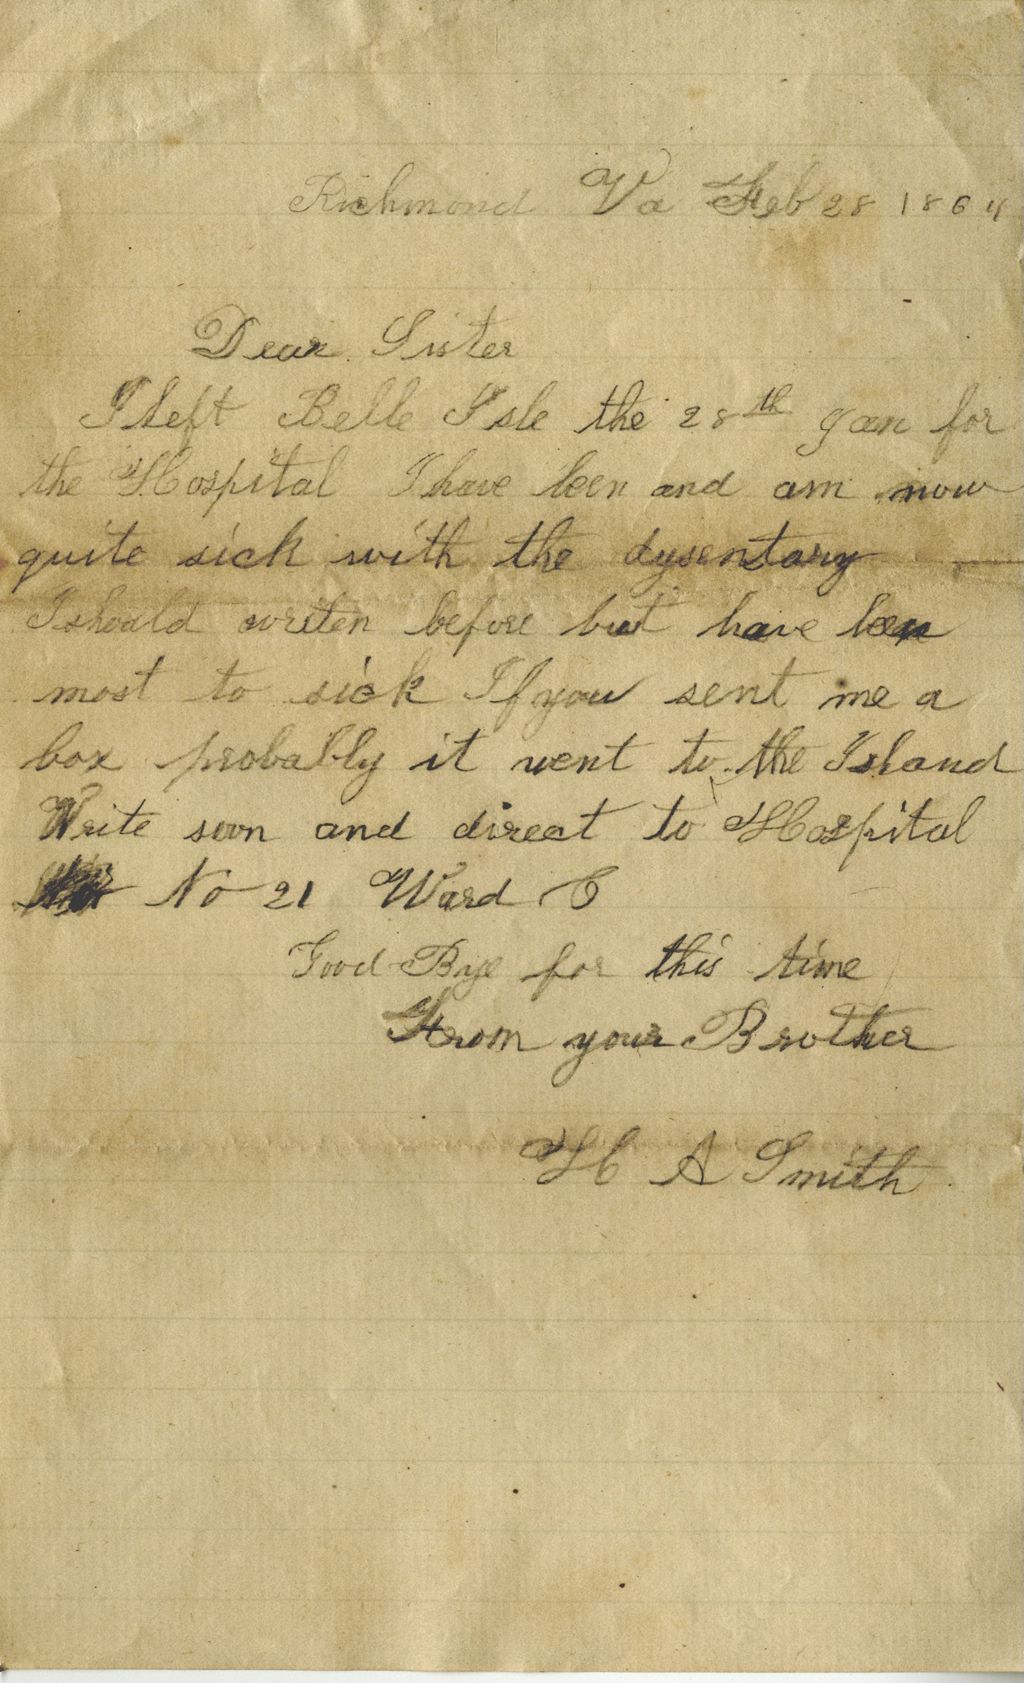 Richmond Va Feb 28 1864
Dear Sister
I Left Belle Isle the 28th Jan for
the Hospital I have been and am now
quite sick with the dysentary
I should writen before but have been
most to sick If you sent me a
box probably it went to the Island
Write soon and direct to Hospital
No 21 Ward C
Good Bye for this time
From your Brother
H A Smith